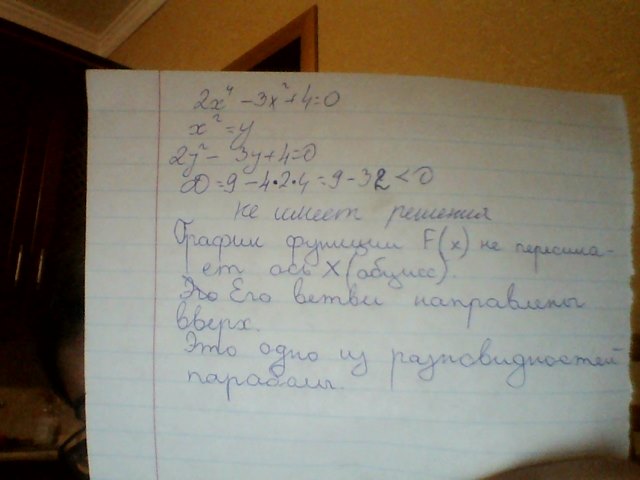 2x⁴ - 3x² + 4 = 0
x² = y
2y² - 3y + 4 = 0
D = 9 - 4•2•4 = 9 - 32 < 0
не имеет решения
График функции F(x) не пересека-
ет ось X (абцисс).
Его Его ветви направлены
вверх.
Это одно из разновидностей
параболы.